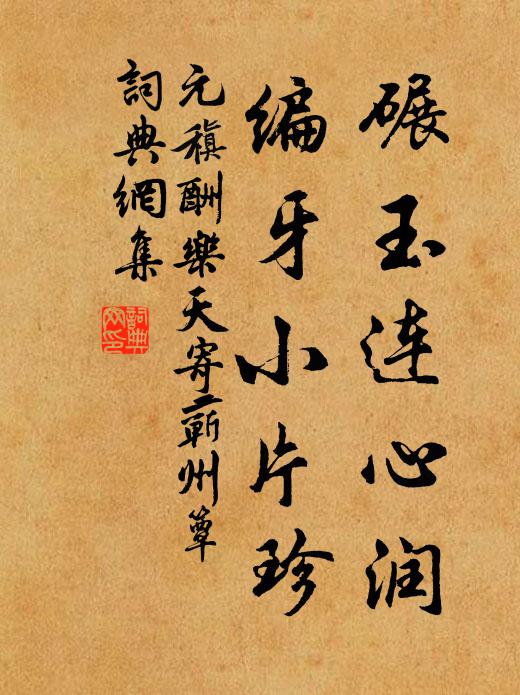 碾玉连心润
编牙小片珍
元稹酬樂天寄蘄州簟
詞典網集
詞典網印